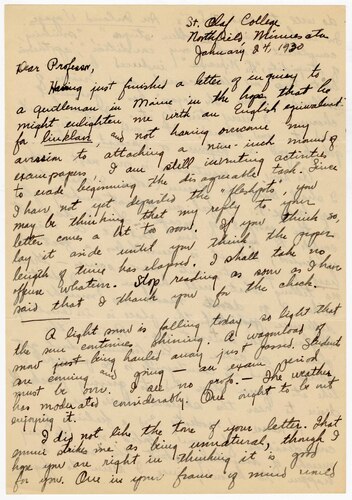 St. Olaf College
Northfield, Minnesota
January 24, 1930
Dear Professor,
Having just finished a letter of inquiry to
a gentleman in Maine in the hope that he
might enlighten me with an English equivalent
for linklau, and not having overcome my
aversion to attacking a nine-inch mound of
exam papers, I am still inventing activities
to evade beginning the disagreeable task. Since
I have not yet departed the "fleshpots", you
may be thinking that my reply to your
letter comes a bit too soon. If you think so,
lay it aside until you think the proper
length of time has elapsed. I shall take no
offense whatever. Stop reading as soon as I have
said that I thank you for the check.
A light snow is falling today, so light that
the sun continues shining. A wagonload of
snow just being hauled away just passed. Students
are coming and going — an exam period
must be over. I see no profs. — The weather
has moderated considerably. One ought to be out
enjoying it.
I did not like the tone of your letter. That
ennui struck me as being unnatural, though I
hope you are right in thinking it is good
for you. One in your frame of mind